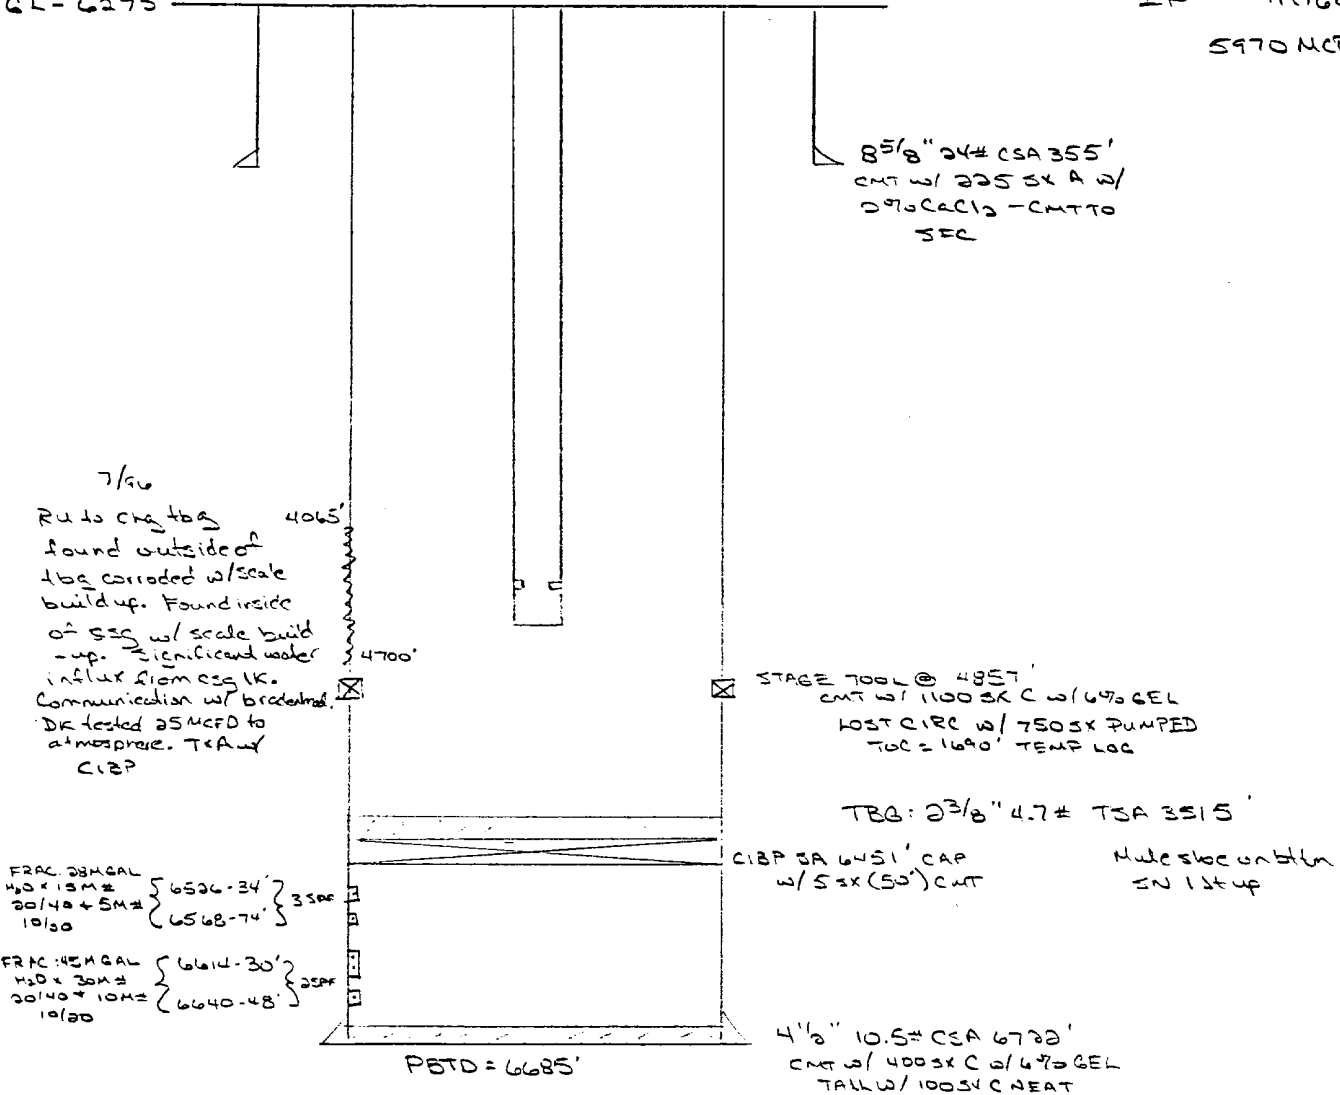 GL- 6275
5970 MCF
8 5/8" 24# CSA 355'
CMT w/ 225 SX A w/
2% CaCl2 - CMT TO
SFC
7/96
RU to chg tbg
found outside of
tbg corroded w/scale
buildup. Found inside
of csg w/ scale build
-up. Significant water
influx from csg lk.
Communication w/ bradenhd.
DK tested 25 MCFD to
atmosphere. T&A w/
CIBP
4065'
4700'
STAGE TOOL @ 4857'
CMT w/ 1100 SX C w/ 6% GEL
LOST CIRC w/ 750 SX PUMPED
TOC = 1690' TEMP LOG
TBG: 2 3/8" 4.7# TSA 3515'
Mule shoe on bttm
SN 1 Jt up
CIBP SA 6451' CAP
w/ 5 sx (50') CMT
FRAC: 28M GAL
H2O x 15M#
20/40 + 5M#
10/20
6526-34'
6568-74'
3 SPF
FRAC: 45M GAL
H2O x 30M#
20/40 + 10M#
10/20
6614-30'
6640-48'
2SPF
PBTD = 6685'
4 1/2" 10.5# CSA 6722'
CMT w/ 400 SX C w/ 6% GEL
TAIL W/ 100 SX C NEAT